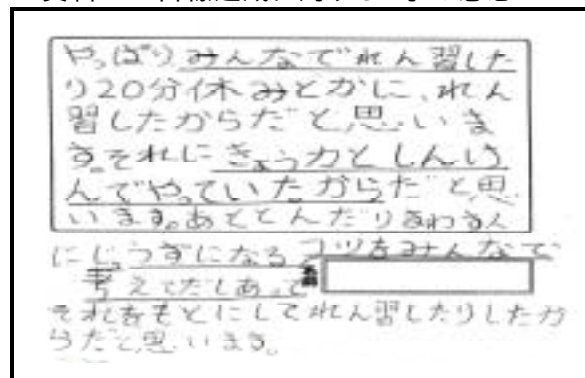 やっぱりみんなでれん習した
り20分休みとかに、れん
習したからだと思いま
す。それにきょう力としんけ
んでやっていたからだと思
います。あととんだりまわす人
にじょうずになるコツをみんなで
考えてだしあって
名前
それをもとにしてれん習したりしたか
らだと思います。